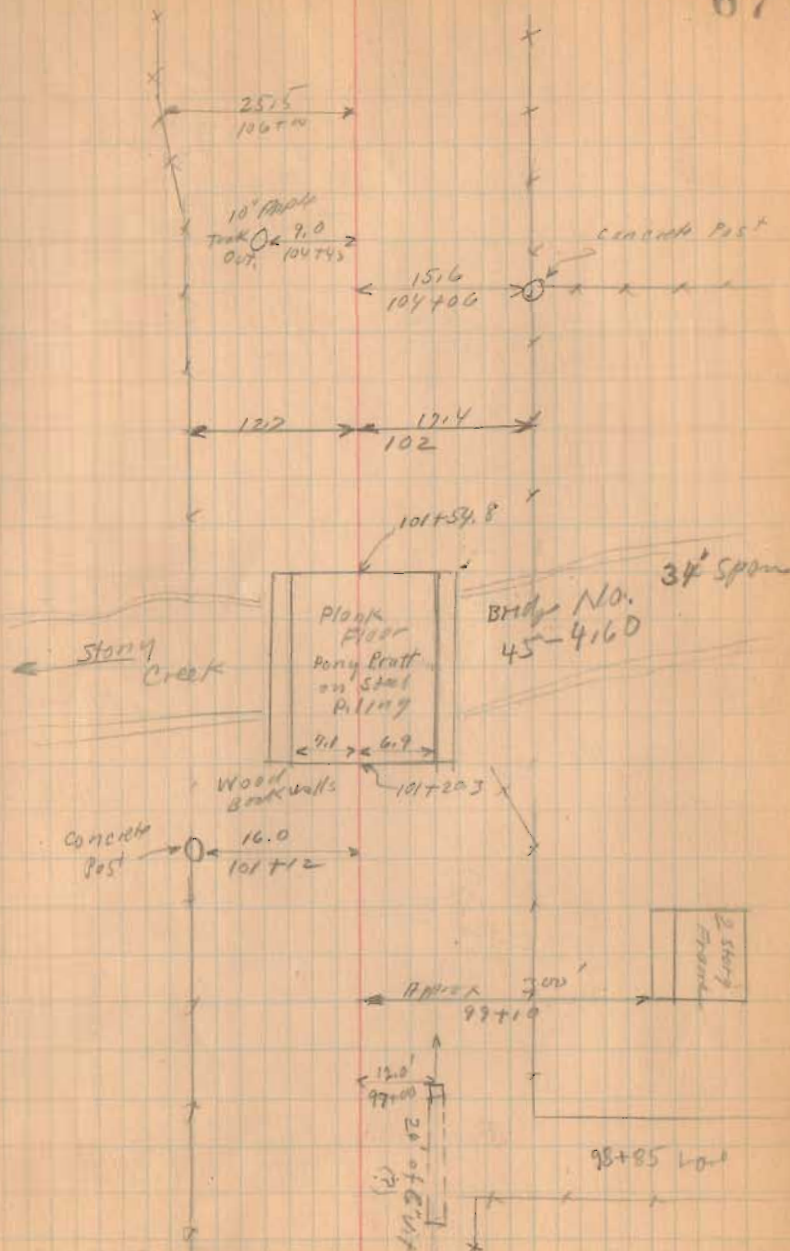 67
25.5
106+00
10" Apple
Took
Out.
9.0
104+43
Concrete Post
15.6
104+06
12.7
17.4
102
101+54.8
34' Span
Bridge No.
45-4.60
Plank
Floor
Pony Pratt
on Steel
Piling
Stony
Creek
7.1
6.9
101+20.3
Wood
Backwalls
Concrete
Post
16.0
101+12
2 Story
Frame
Approx 300'
99+10
12.0'
99+00
20' of 8" VT
(?)
98+85